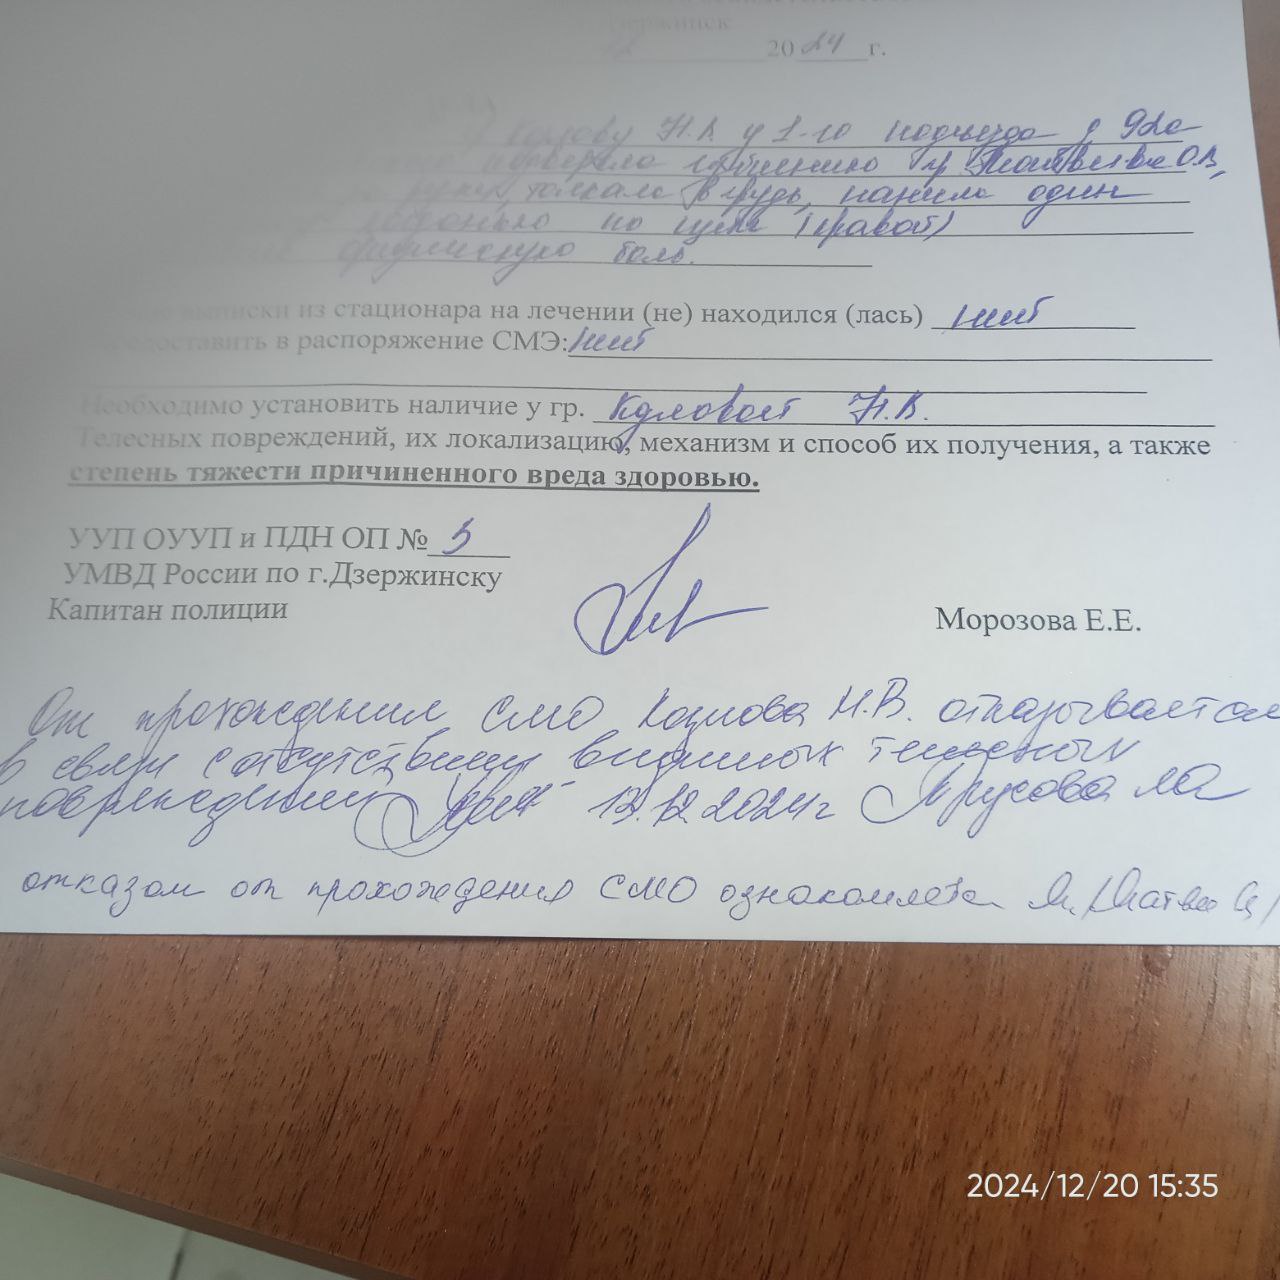 2024 г.
Козлову Н.В. у 1-го подъезда д 92а
Матвеева О.В,
толкала в грудь, нанесла один
по щеке (правой)
физическую боль.
выписки из стационара на лечении (не) находился (лась) нет
предоставить в распоряжение СМЭ: нет
Необходимо установить наличие у гр. Козловой Н.В.
Телесных повреждений, их локализацию, механизм и способ их получения, а также
степень тяжести причиненного вреда здоровью.
УУП ОУУП и ПДН ОП № 3
УМВД России по г.Дзержинску
Капитан полиции
Морозова Е.Е.
От прохождения СМО Козлова Н.В. отказывается
в связи с отсутствием видимых телесных
повреждений 13.12.2024г
отказом от прохождения СМО ознакомлена
2024/12/20 15:35